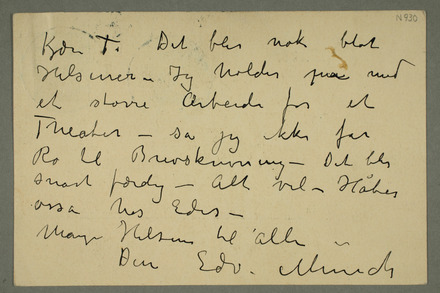 N 930
Kjære T. Det blir nok blot
Hilsener – Jeg holder paa med
et større Arbeide for et
Theater – så jeg ikke får
Ro til Brevskrivning – Det blir
snart færdig – Alt vel – Håber
osså hos Eders –
Mange Hilsener til alle
Din Edv. Munch